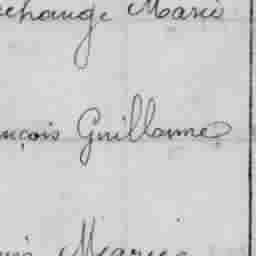 échange Marie
nçois Guillaume
Marie